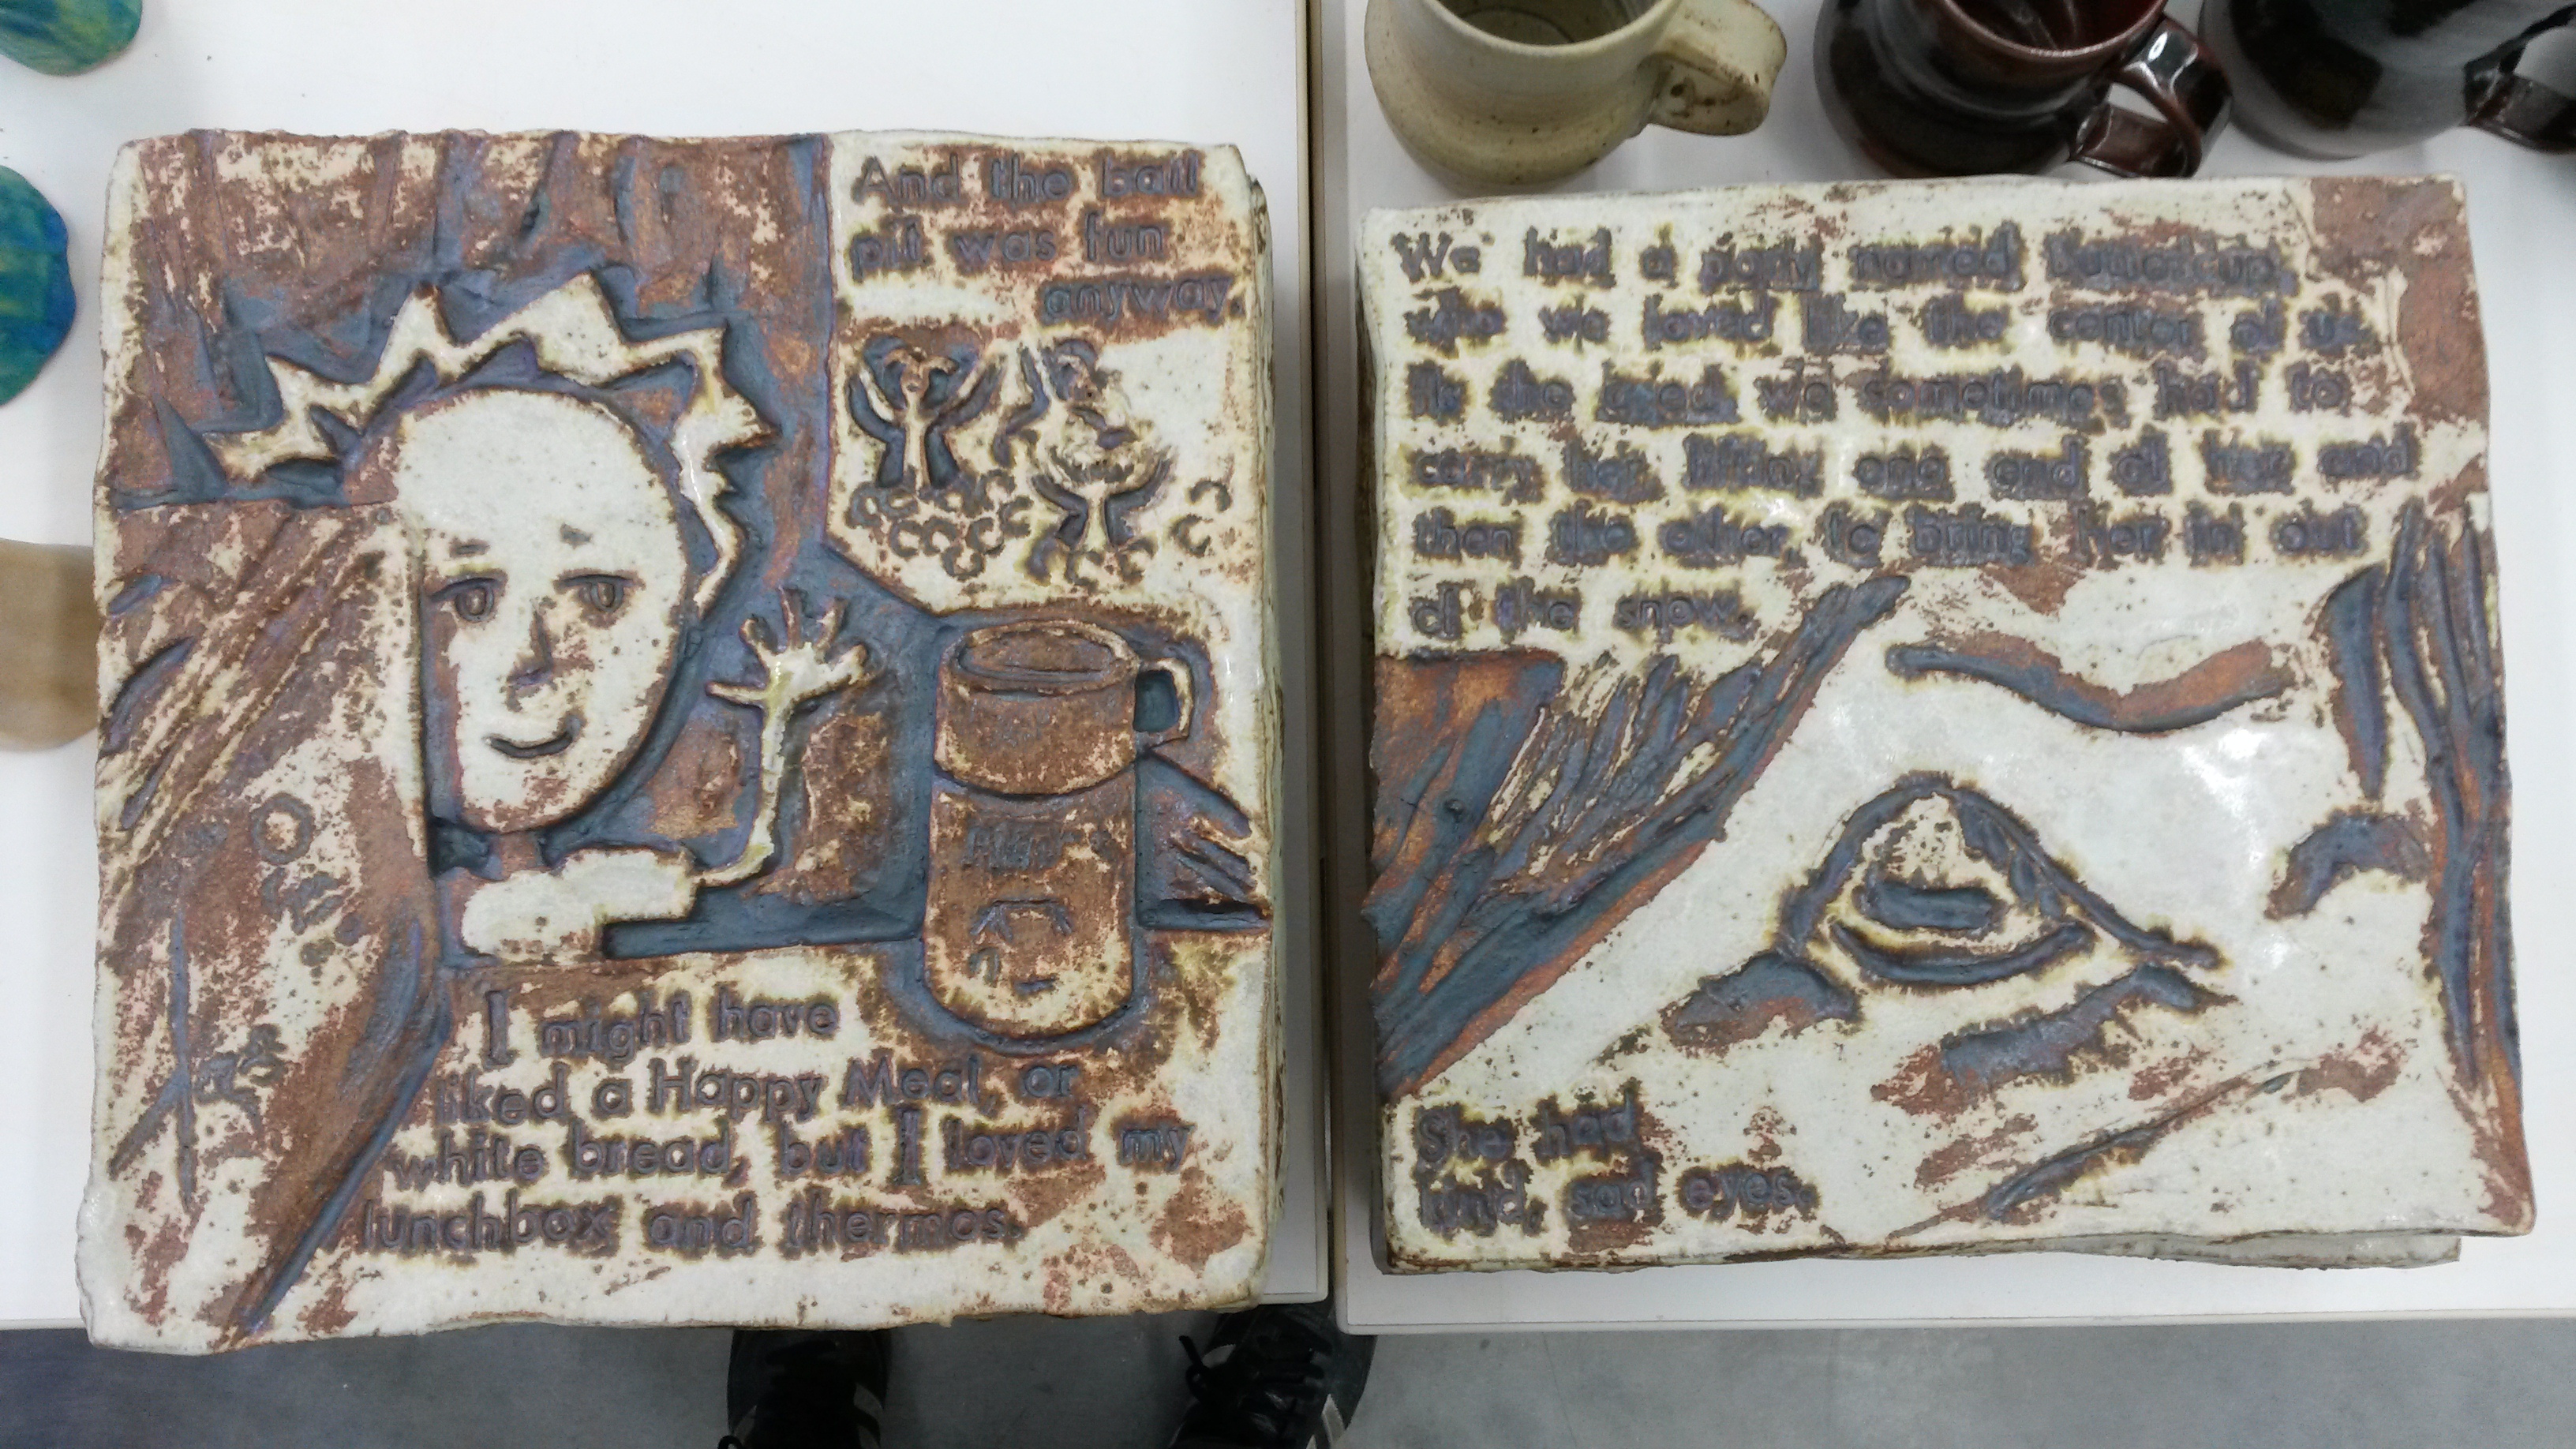 And the ball
pit was fun
anyway.
I might have
liked a Happy Meal, or
white bread, but I loved my
lunchbox and thermos.
We had a pony named Buttercup,
who we loved like the center of us.
As she aged, we sometimes had to
carry her, lifting one end of her and
then the other, to bring her in out
of the snow.
She had
kind, sad eyes.